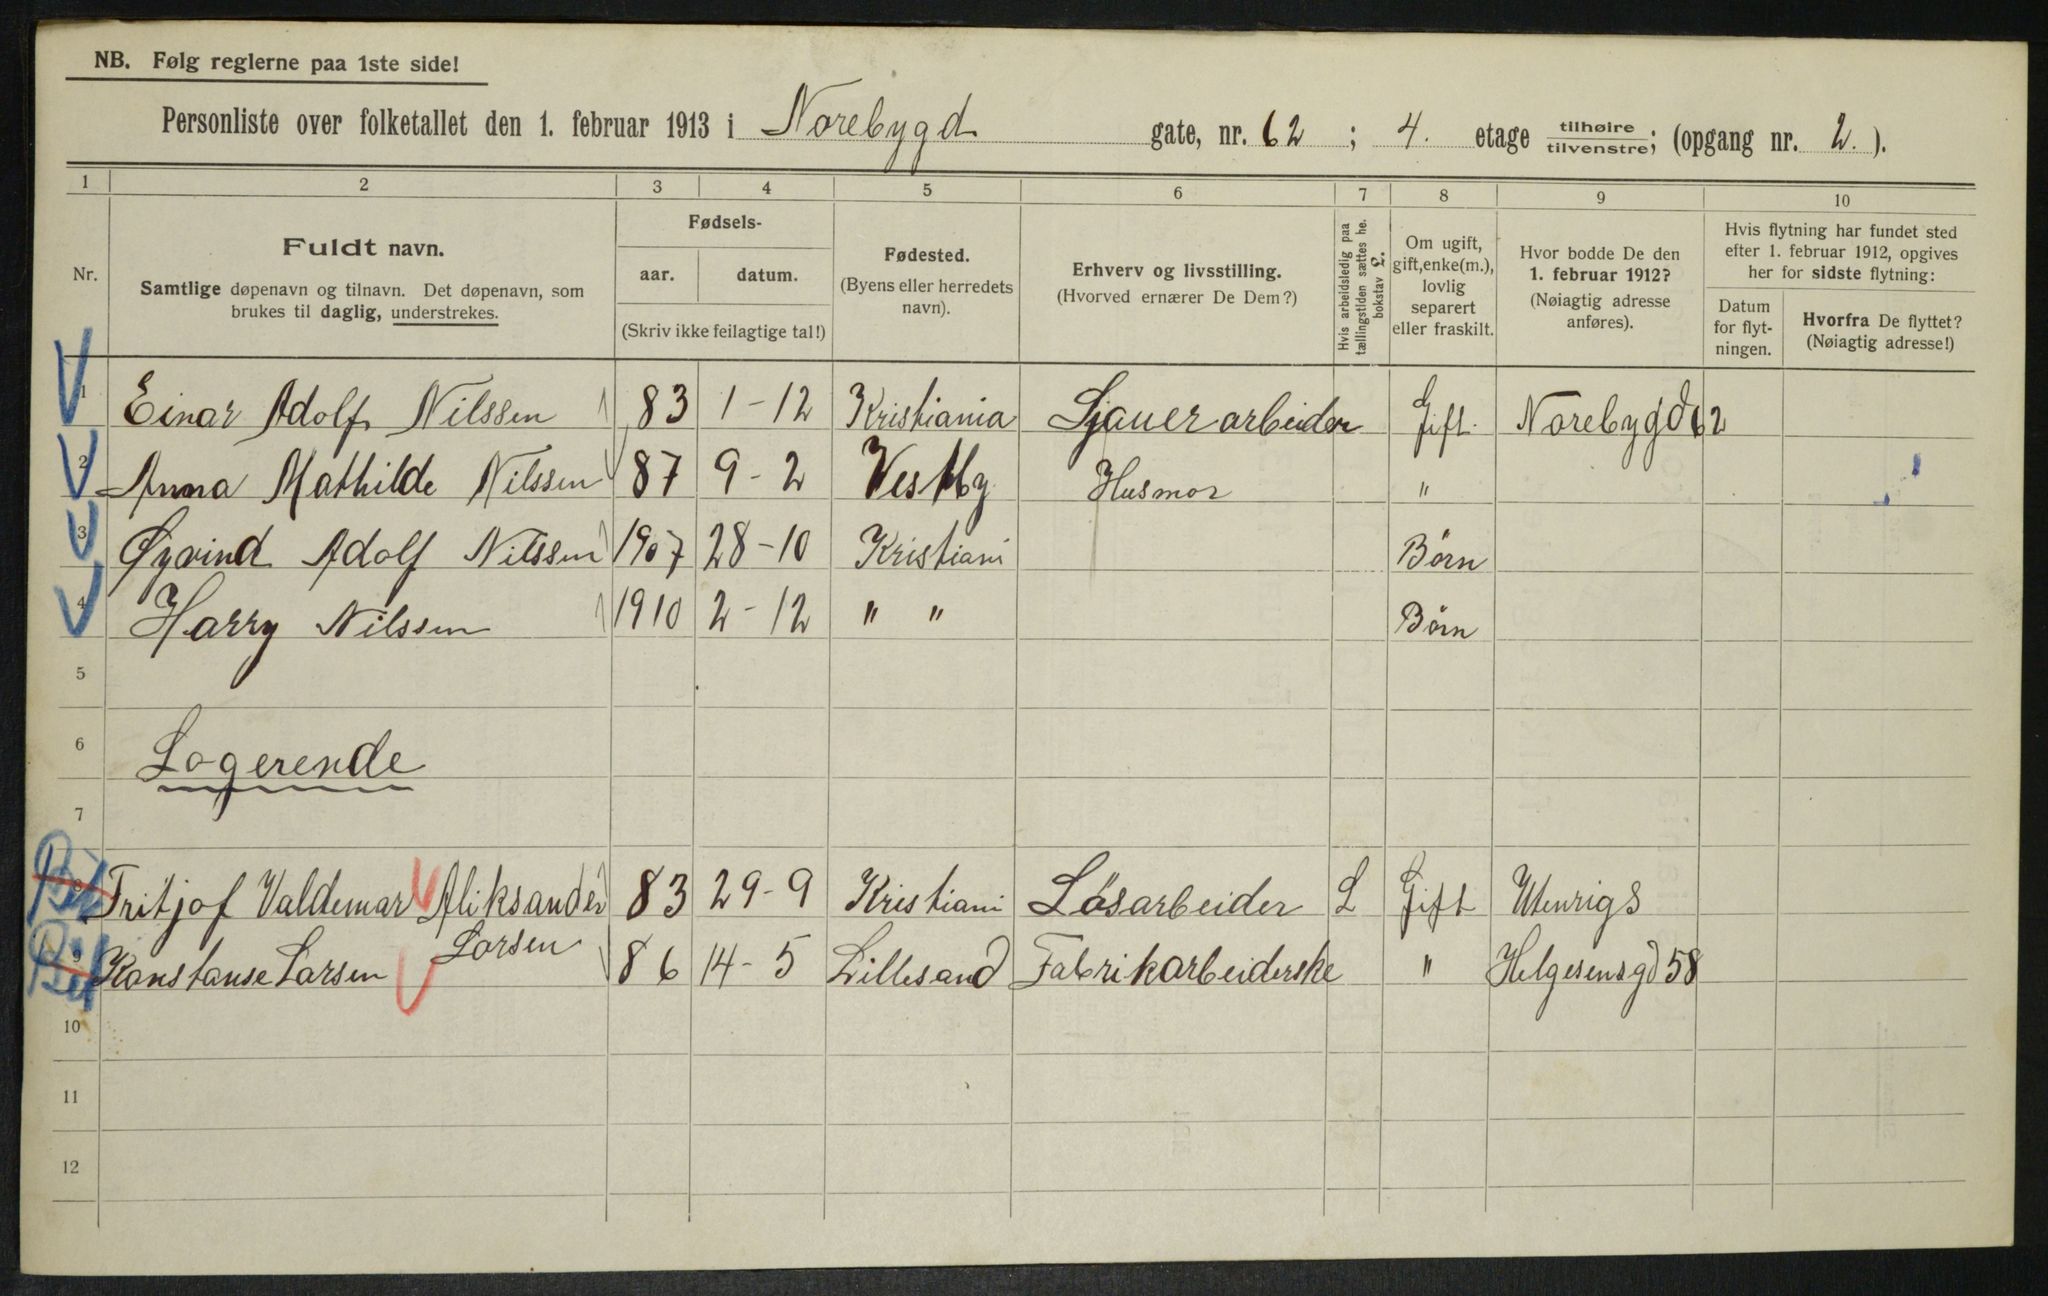 NB. Følg reglerne paa 1ste side!
Personliste over folketallet den 1. februar 1913 i Norebygd gate, nr. 62 ; 4. etage tilhøire tilvenstre; (opgang nr. 2. ).
1 2 3 4 5 6 7 8 9 10
Nr.
Fuldt navn.
Samtlige døpenavn og tilnavn. Det døpenavn, som
brukes til daglig, understrekes.
Fødsels-
aar. datum.
(Skriv ikke feilagtige tal!)
Fødested.
(Byens eller herredets
navn).
Erhverv og livsstilling.
(Hvorved ernærer De Dem?)
Hvis arbeidsledig paa
tællingstiden sættes he.
bokstav L.
Om ugift,
gift, enke(m.),
lovlig
separert
eller fraskilt.
Hvor bodde De den
1. februar 1912?
(Nøiagtig adresse
anføres).
Hvis flytning har fundet sted
efter 1. februar 1912, opgives
her for sidste flytning:
Datum
for flyt-
ningen.
Hvorfra De flyttet?
(Nøiagtig adresse!)
1 Einar Adolf Nilssen 83 1-12 Kristiania Sjauerarbeider Gift. Norebygd 62
2 Anna Mathilde Nilssen 87 9-2 Vestby Husmor "
3 Øyvind Adolf Nilssen 1907 28-10 Kristiani Børn
4 Harry Nilssen 1910 2-12 " " Børn
5
6 Logerende
7
8 Fritjof Valdemar Aliksander 83 29-9 Kristiani Løsarbeider L Gift Utenrigs
Larsen
9 Konstanse Larsen 86 14-5 Lillesand Fabrikarbeiderske " Helgesensgd 58
10
11
12